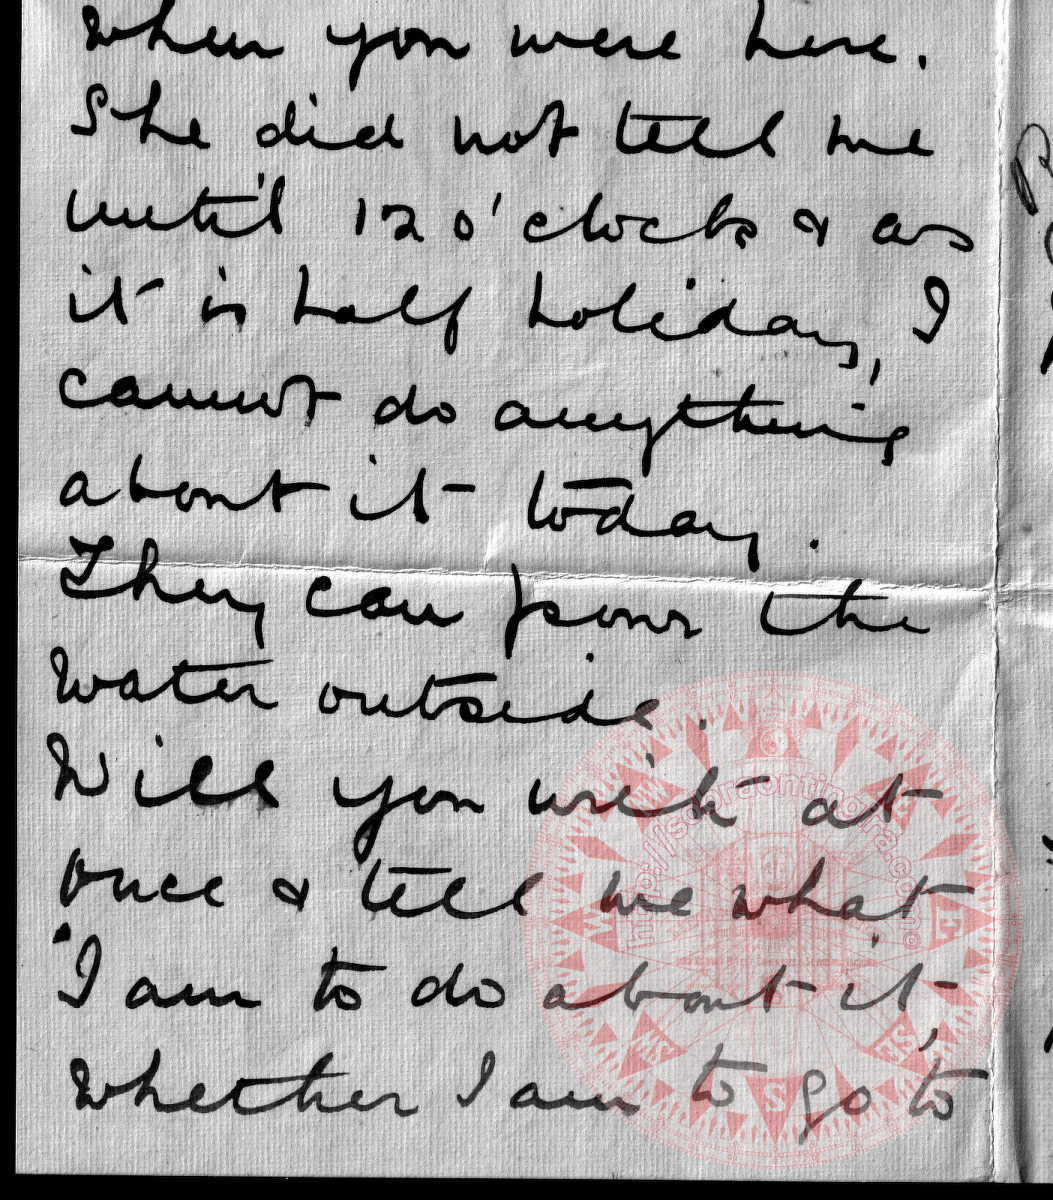 when you were here.
She did not tell me
until 12 o'clock & as
it is half holiday, I
cannot do anything
about it today.
They can pour the
water outside.
Will you write at
once & tell me what
I am to do about it,
whether I am to go to